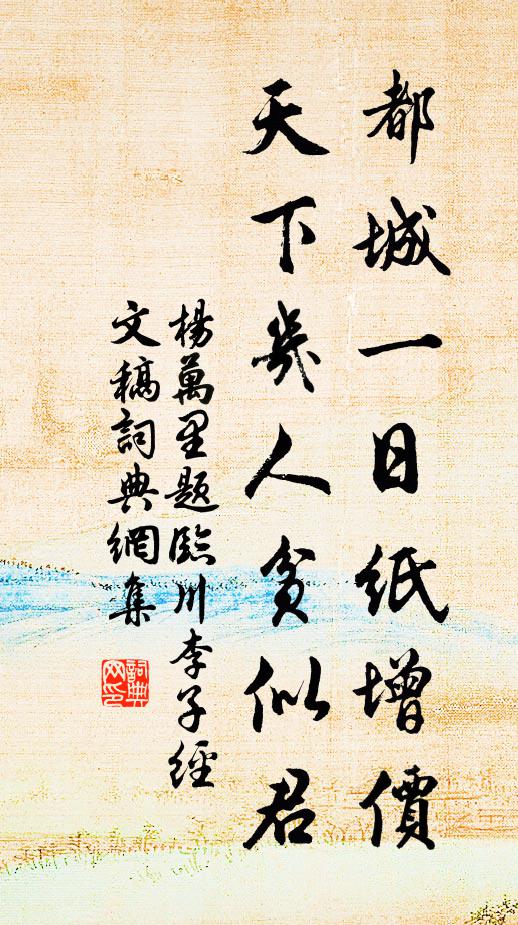 都城一日紙增價
天下幾人貧似君
楊萬里題臨川李子經
文稿詞典網集
詞典
网印